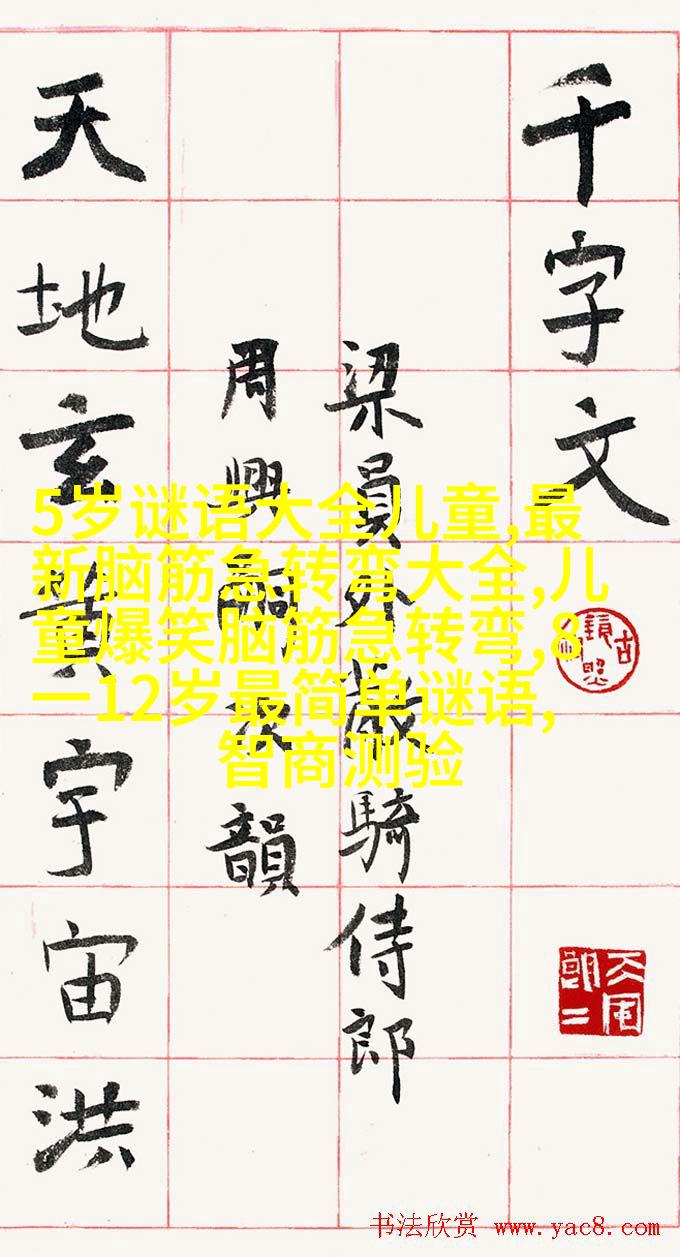 千字文
梁員外散騎侍郎
周興嗣次韻
天地玄黃宇宙洪
5岁谜语大全儿童,最
新脑筋急转弯大全,儿
童爆笑脑筋急转弯,8
一12岁最简单谜语,
智商测验
书法欣赏 www.yac8.com